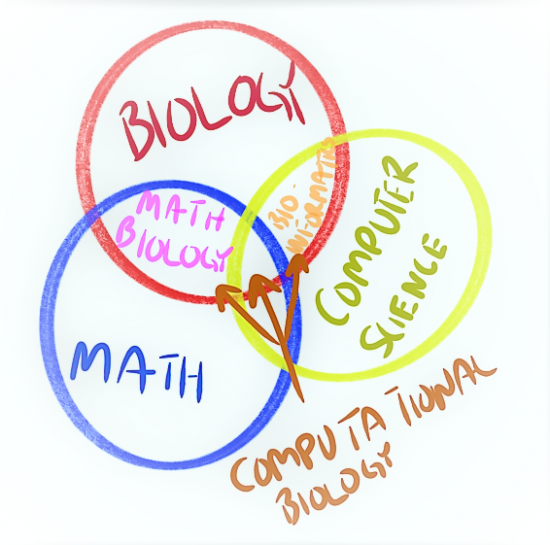 BIOLOGY
MATH
BIOLOGY
BIO-
INFORMATICS
COMPUTER
SCIENCE
MATH
COMPUTATIONAL
BIOLOGY